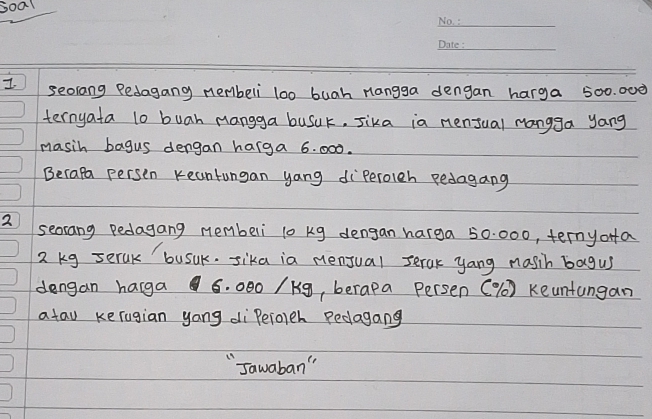 Soal
No.:
Date:
1 seorang Pedagang Membeli 100 buah Mangga dengan harga 500.000
ternyata 10 buah Mangga busuk. Jika ia Menjual Mangga yang
Masih bagus dengan harga 6.000.
Berapa Persen Keuntungan yang diPeroleh Pedagang
2 Seorang Pedagang Membeli 10 kg dengan harga 50.000, ternyata
2 kg Jeruk busuk. Jika ia Menjual Jeruk yang Masih bagus
dengan harga 6.000 / Kg, berapa Persen (%) Keuntungan
atau Kerugian yang diPeroleh Pedagang
"Jawaban"